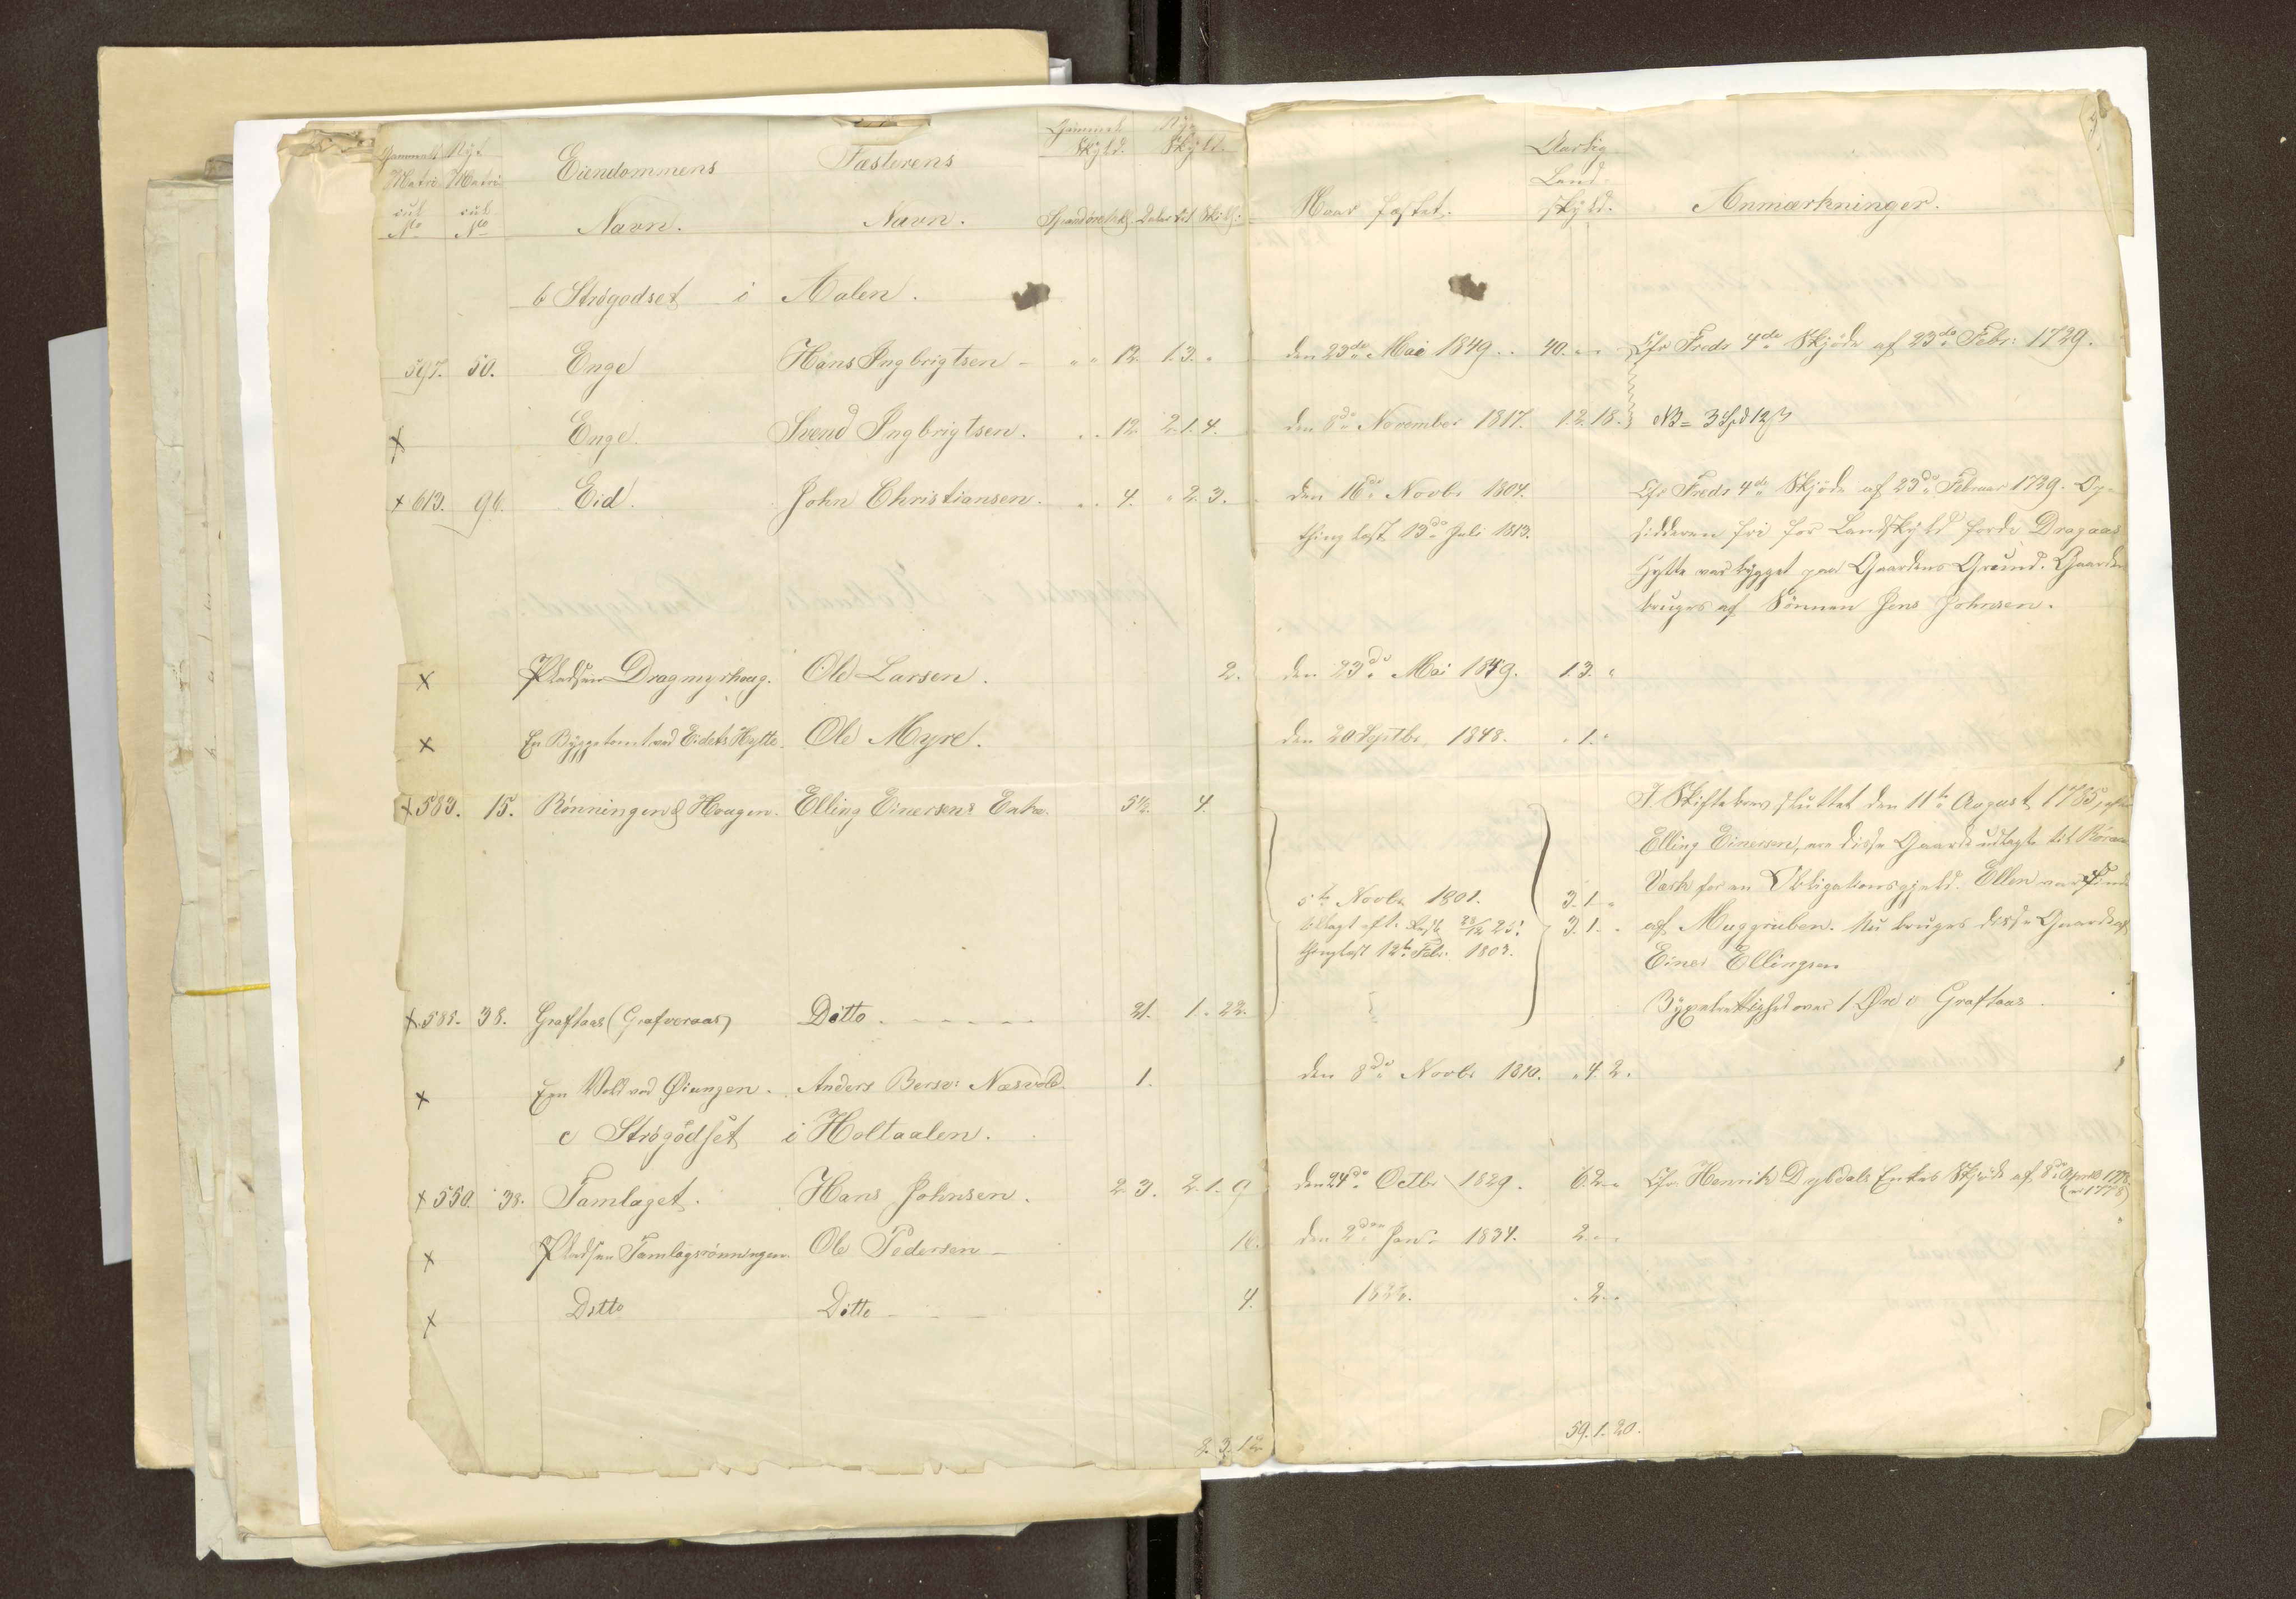 Gammelt Nyt Eiendommens Fæsterens Gammel Ny
Matri Matri Skyld. Skyld.
cul cul Navn. Navn. Spand øre Mk Daler Ort Skill:
No No
Naar fæstet. Aarlig Land- skyld. Anmærkninger.
b Strøgodset i Aalen.
597. 50. Enge Hans Ingbrigtsen - " " 12. 1.3. " den 23de Mai 1849. 40. " Efr Fredr 4de Skjöde af 23de Febr: 1729.
x Enge. Svend Ingbrigtsen. " " 12. 2.1.4. den 8de November 1817. 12.18. NB = 3 Spd 12 ß
x 613. 96. Eid. John Christiansen. " " 4. " 2.3. den 16de Novbr 1804. Efr Fredr 4de Skjöde af 23de Februar 1729. Op-
thinglæst 13de Juli 1813. sidderen fri for Landskyld fordi Dragaas
Hytte var bygget paa Gaardens Grund. Gaarden
bruges af Sönnen Jens Johnsen.
x Pladsen Dragmyrhaug. Ole Larsen. 2. den 23de Mai 1849. 1.3. "
x En Byggetomt ved Eidets Hytte. Ole Myre. den 20 Septbr. 1848. " 1. "
x 583. 15. Rönningen & Hougen. Elling Einersens Enke. 5½. 4. I Skiftebrev sluttet den 11te August 1785, efter
Elling Einersen, ere disse Gaarde udlagte til Röraas
Værk for en Obligationsgjæld. Ellen var
5te Novbr 1801. 3.1. " af Muggruben. Nu bruges disse Gaarde af
3.1. " Einer Ellingsen
thinglæst 12te Febr. 1803.
x 585. 38. Graftaas (Grafveraas) Ditto - - - - 21. 1. 22. Bygselrettighed over 1 Øre i Graftaas
x Een Vold ved Øiungen. Anders Bersv: Næsvold. 1. den 8de Novbr 1810. " 4. 2.
c Strøgödset i Holtaalen.
x 550. 38. Tamlaget. Hans Johnsen. 2. 3. 2. 1. 9 den 24de Octbr 1829. 6. 2. " Efr. Henrik Dryldals Enkes Skjöde af 8de April 1778
x Pladsen Tamlagsrönningen Ole Pedersen - 16. den 2den Janr 1834. 2. "
x Ditto Ditto - - - 4. 1833. " 2. "
8. 3. 12 59. 1. 20.